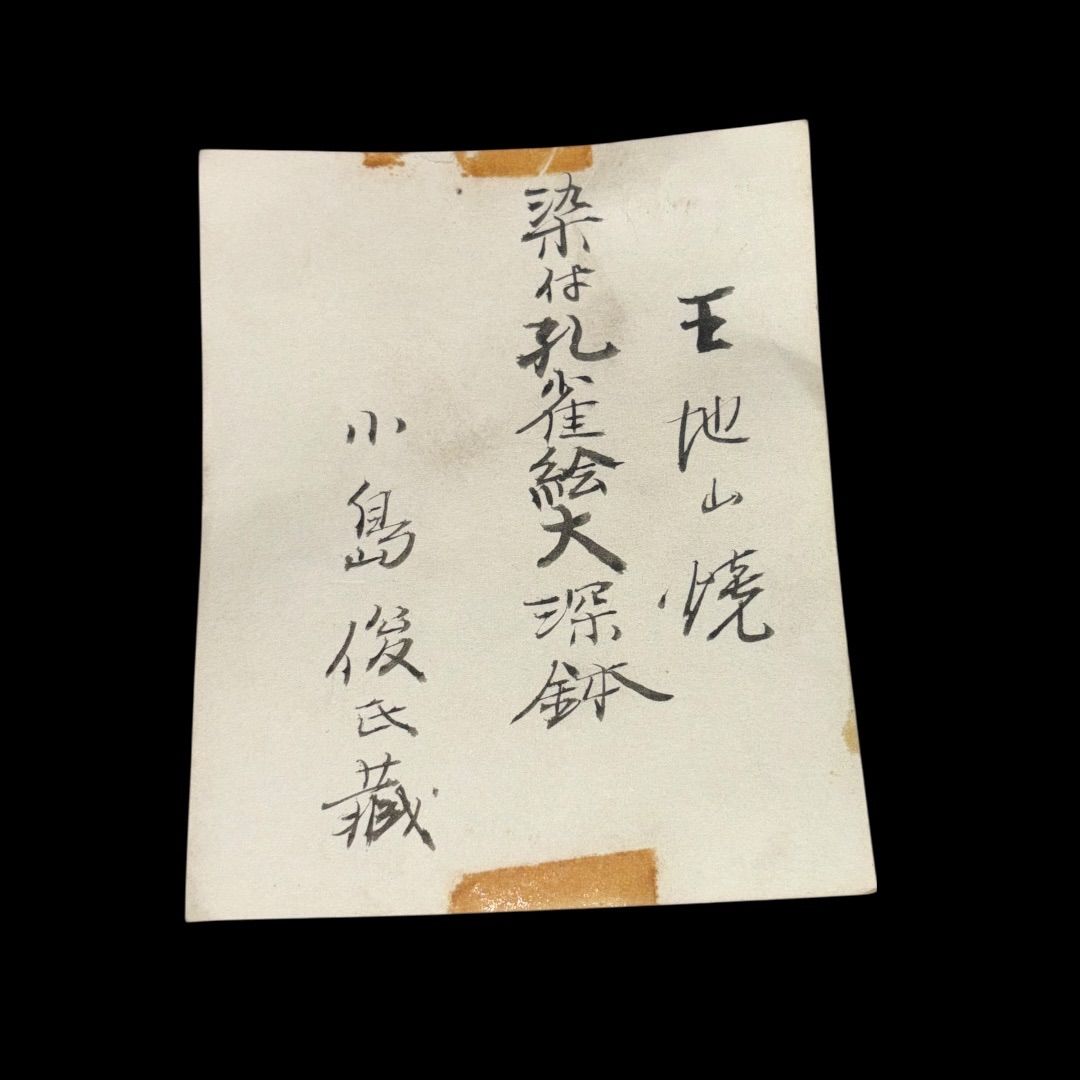 王地山焼
染付孔雀絵大深鉢
小島俊氏蔵